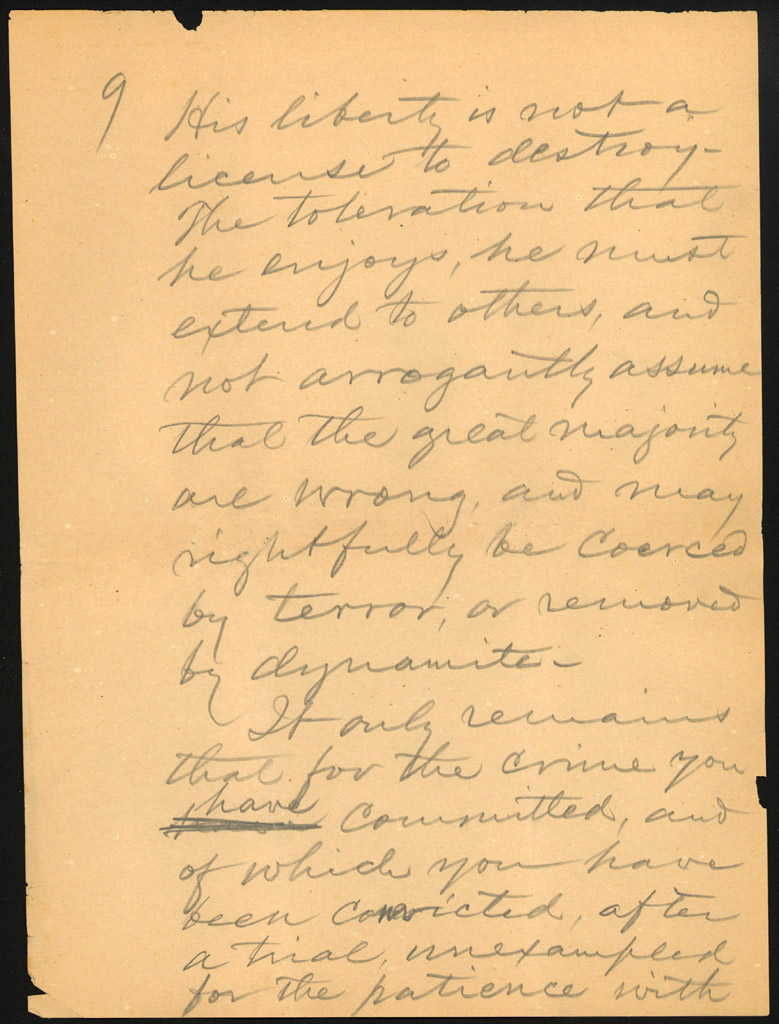 9
His liberty is not a
license to destroy-
The toleration that
he enjoys, he must
extend to others, and
not arrogantly assume
that the great majority
are wrong, and may
rightfully be coerced
by terror, or removed
by dynamite-
It only remains
that for the crime you
have
committed, and
of which you have
been convicted, after
a trial, unexampled
for the patience with